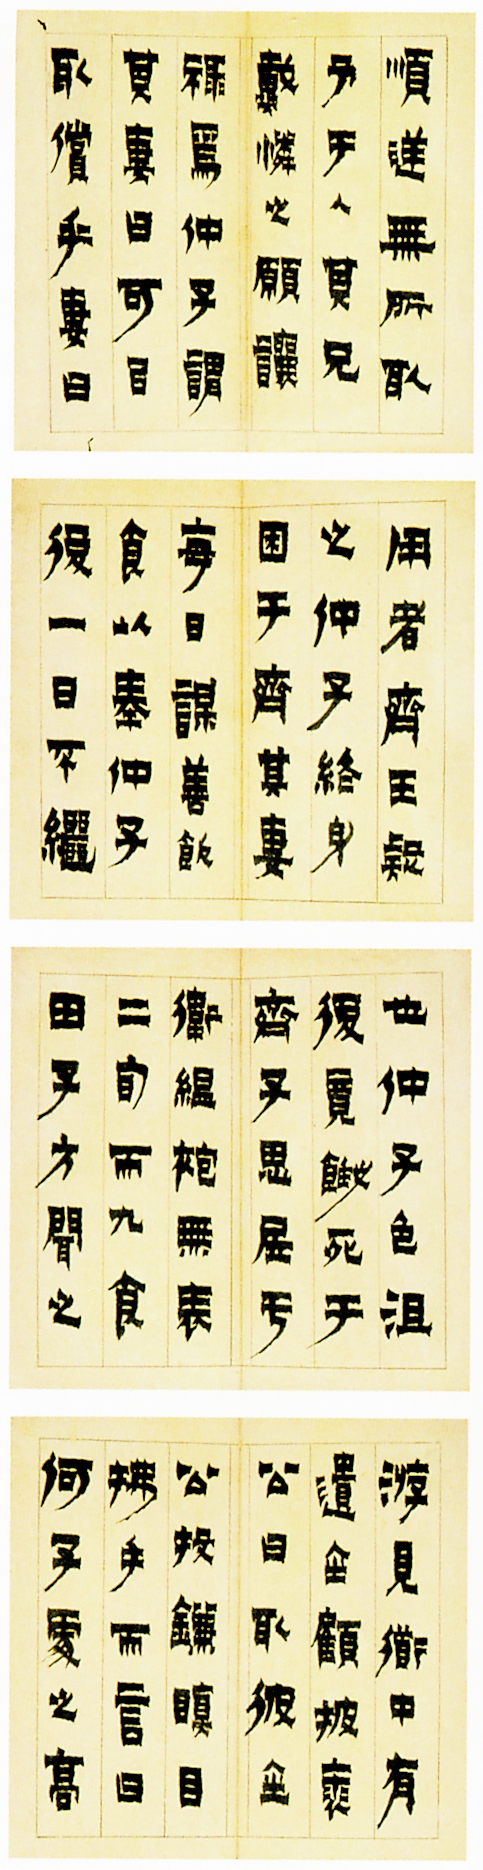 順逆無所取
予于人其兄
戴憐之願讓
祿爲仲子謂
其妻曰可㠯
取償乎妻曰
用者齊王疑
之仲子終身
困于齊其妻
每日謀善飲
食以奉仲子
後一日不繼
也仲子色沮
後竟餓死于
齊子思居亐
衛縕袍無表
二旬而九食
田子方聞之
游見道中有
遺金顧披裘
公曰取彼金
公投鐮瞋目
拂手而言曰
何子處之高